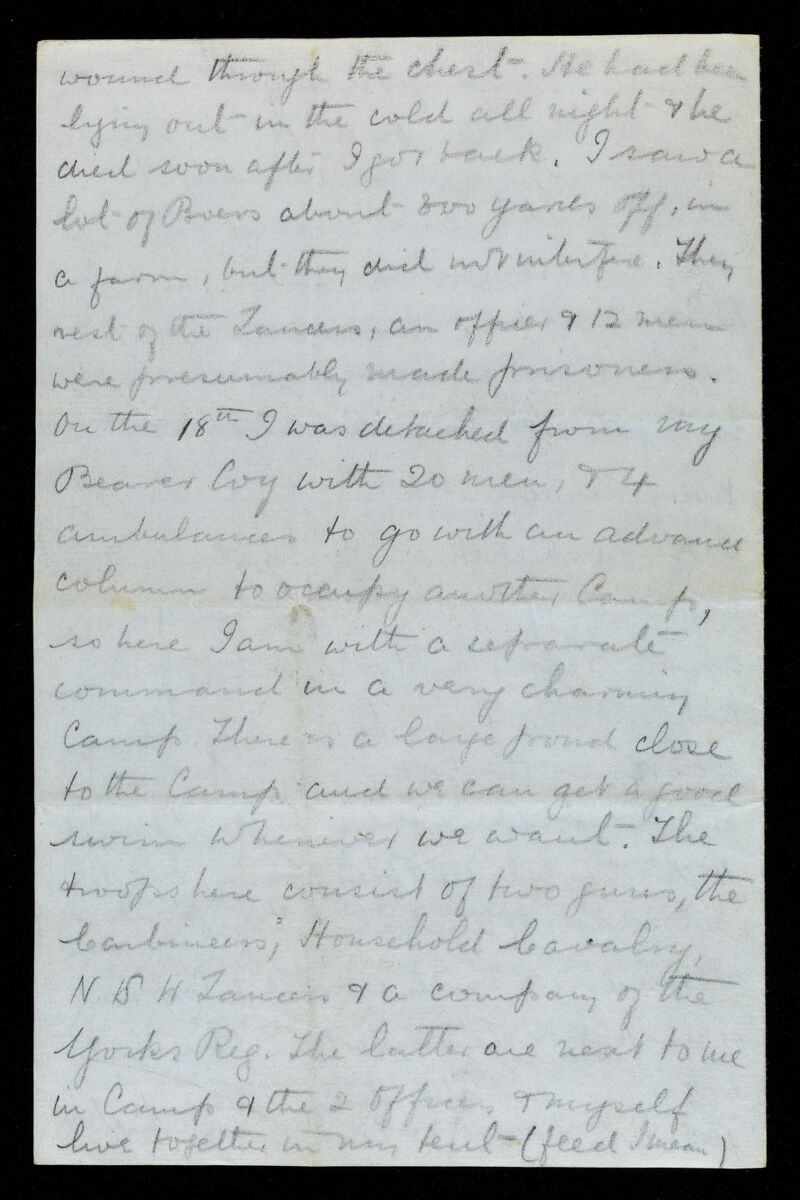 wound through the chest. He had been
lying out in the cold all night & he
died soon after I got back. I saw a
lot of Boers about 800 yards off, in
a farm, but they did not interfere. The
rest of the Lancers, an officer & 12 men
were presumably made prisoners.
On the 18th I was detached from my
Bearer Coy with 20 men, & 4
ambulances to go with an advance
column to occupy another Camp,
so here I am with a separate
command in a very charming
Camp. There is a large pond close
to the Camp and we can get a good
swim whenever we want. The
troops here consist of two guns, the
Carbineers, Household Cavalry,
N. S. W Lancers & a company of the
Yorks Reg. The latter are next to me
in Camp & the 2 Officers & myself
live together in my tent (feed I mean)